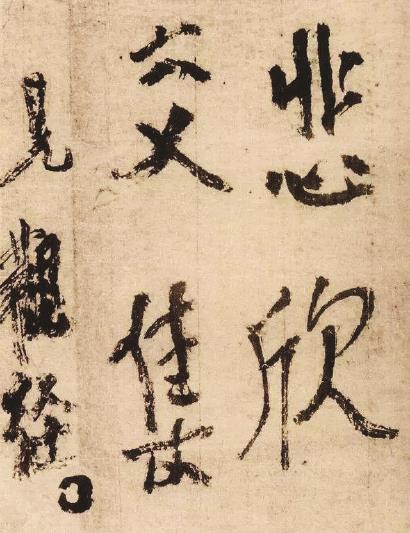 悲欣
交集
見觀經。